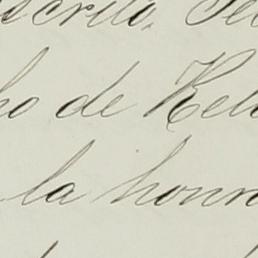 scrito, Se
ho de Rela
la honr